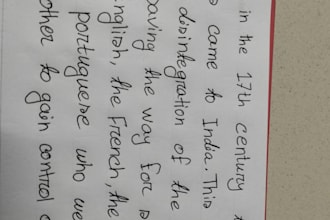 in the 17th century
came to India. This
disintegration of the
paving the way for
English, the French, the
Portuguese who we
other to gain control